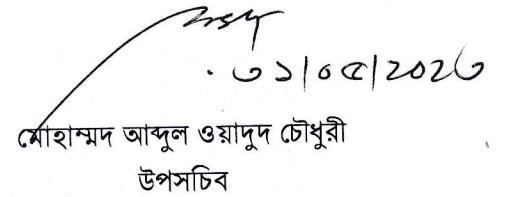 ৩১/০৫/২০২৩
মোহাম্মদ আব্দুল ওয়াদুদ চৌধুরী
উপসচিব